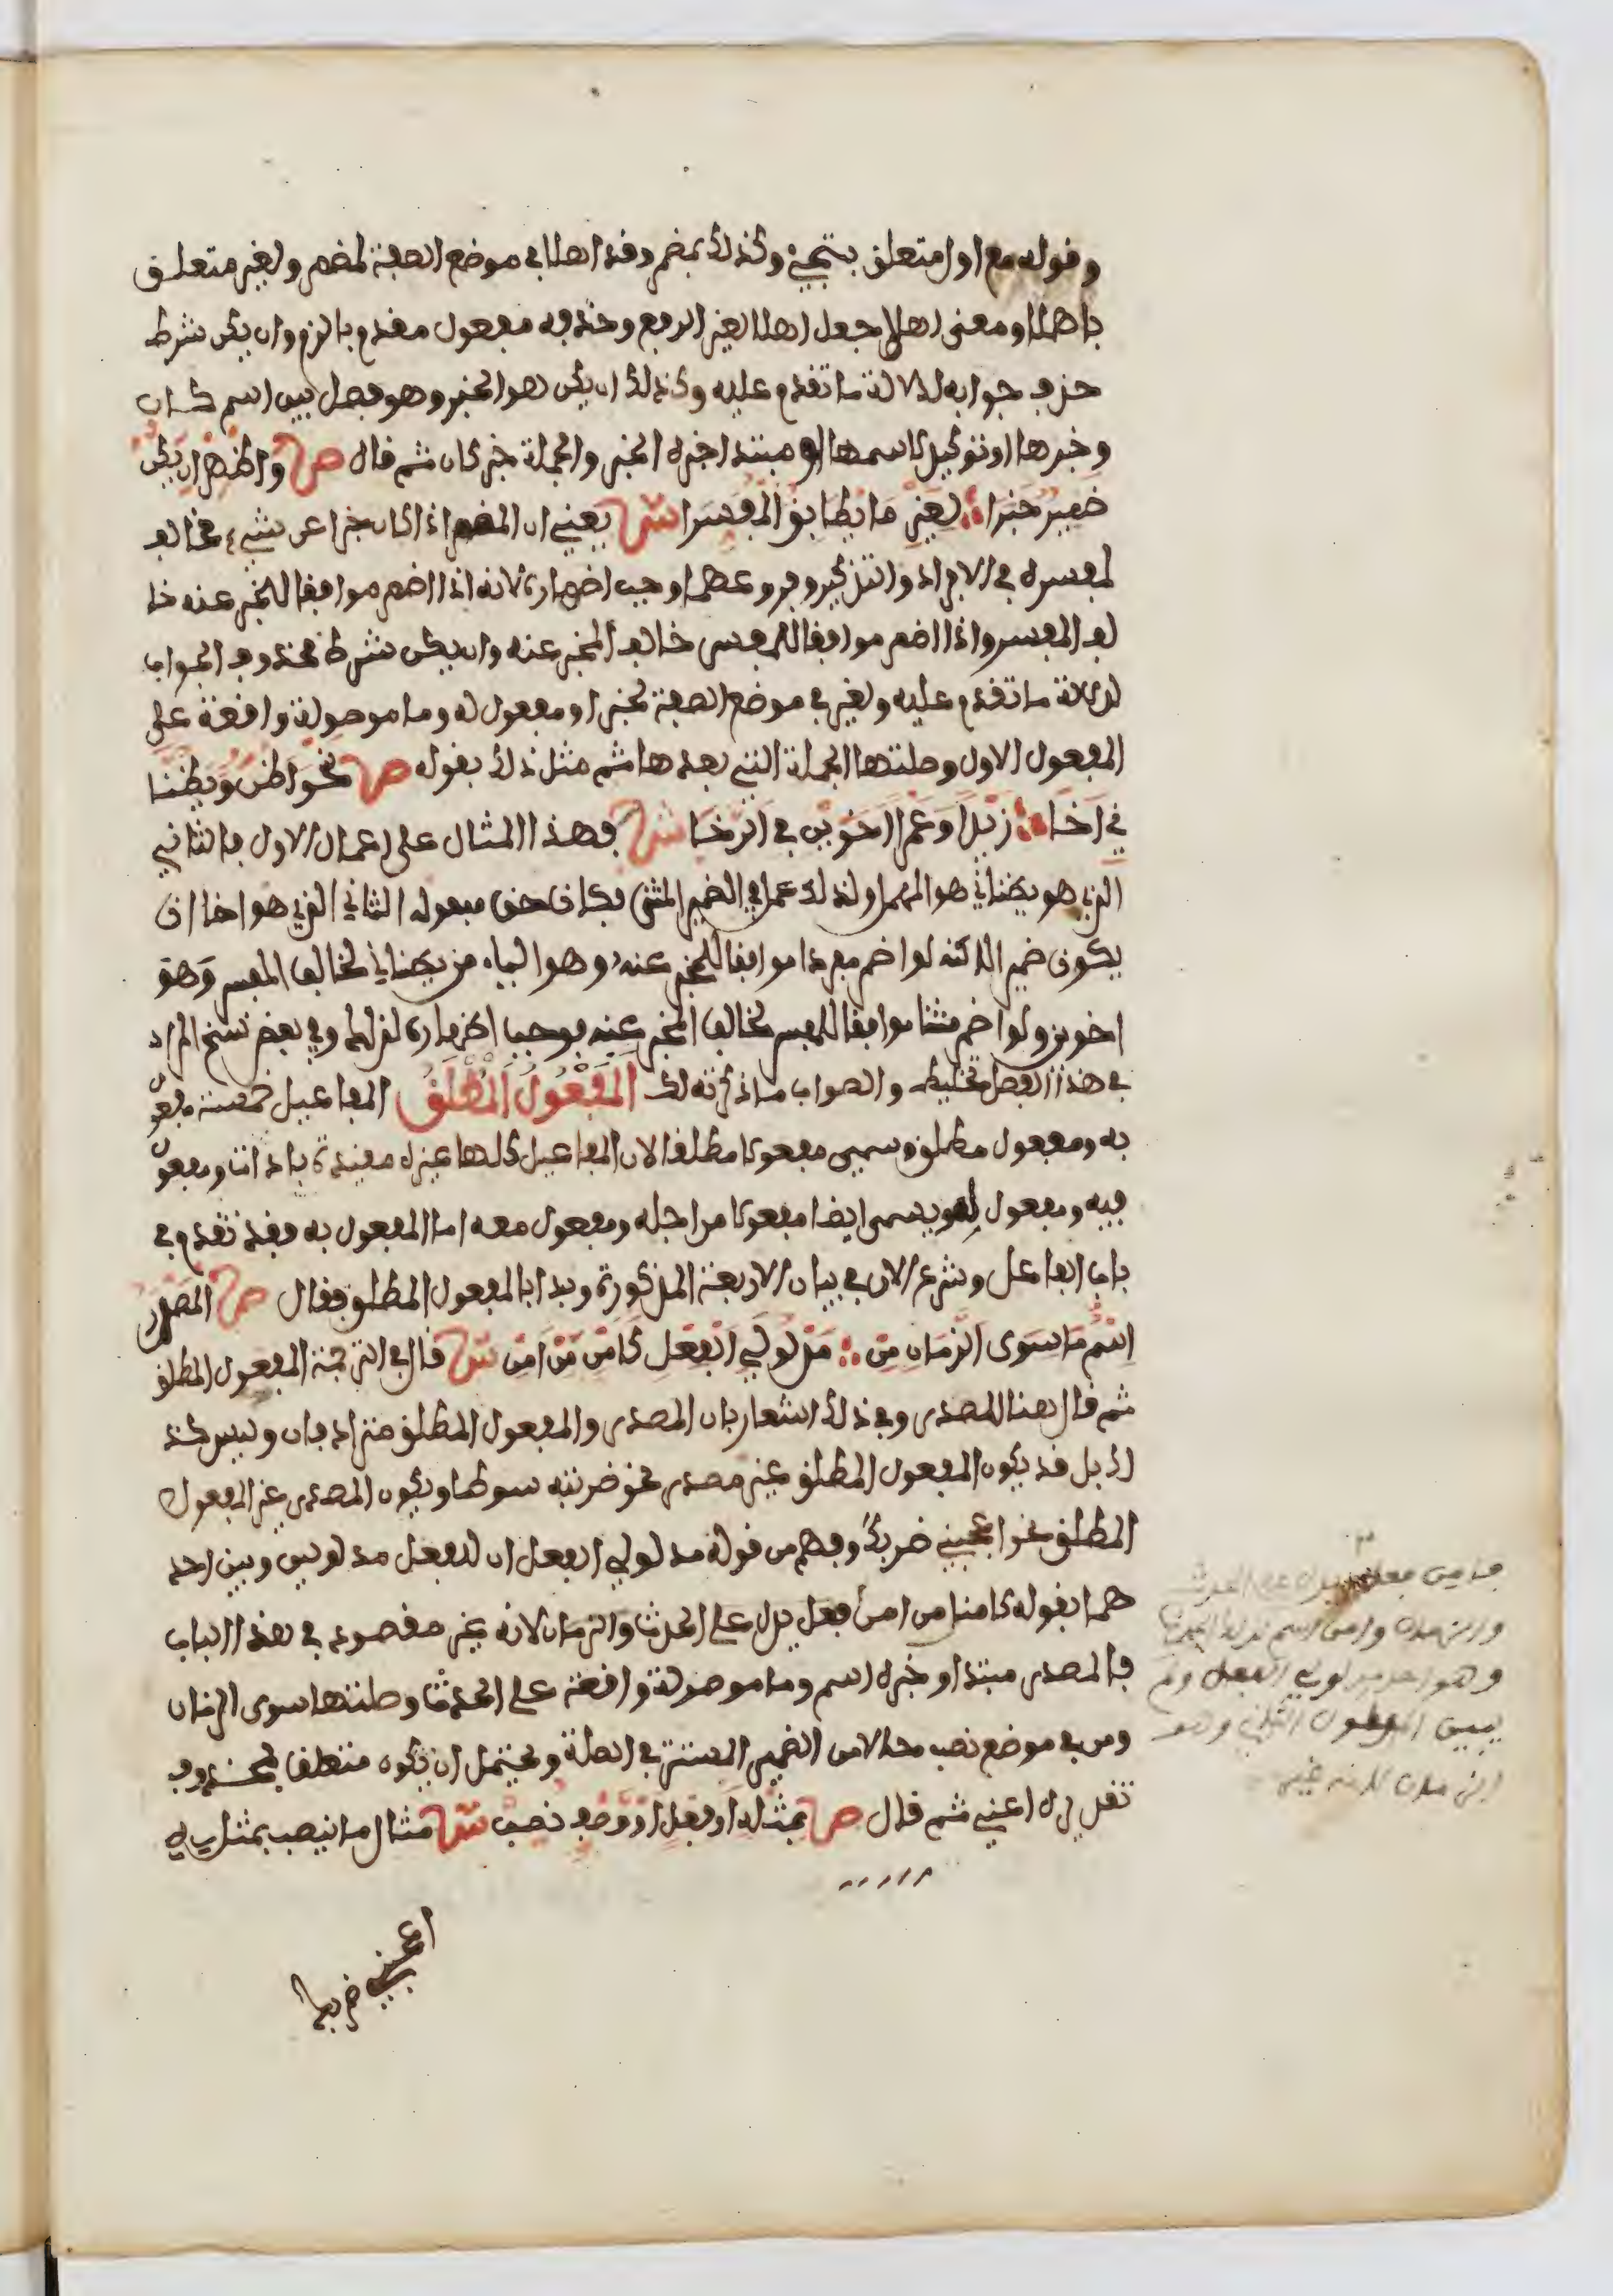 وقوله مع اولا متعلق بتجئ وكذلك بمضمر وقد اهلا في موضع الصفة لمضمر ولغير متعلق
باهلا ومعنى اهلا جعل اهلا لغير الرفع وحذفه مفعول مقدم بالزم وان يكن شرط
حذف جوابه لدلالة ما تقدم عليه وكذلك ان يكن هو الخبر وهو فصل بين اسم كان
وخبرها او توكيد لاسمها او مبتدا خبره الخبر والجملة خبر كان ثم قال ص واظهر ان يكن
ضمير خبرا لغير ما يطابق المفسرا ش يعني ان المضمر اذا كان خبرا عن شيء مخالف
لمفسره في الافراد والتذكير وفروعهما وجب اضماره لانه اذا اضمر موافقا للمخبر عنه خا
لف المفسر واذا اضمر موافقا للمفسر خالف المخبر عنه وان يكن شرط محذوف الجواب
لدلالة ما تقدم عليه ولغير في موضع الصفة لخبرا ومفعول له وما موصولة واقعة على
المفعول الاول وصلتها الجملة التي بعدها ثم مثل ذلك بقوله ص نحو اظن ويظنا
ني اخا زيدا وعمرا اخوين في الرخا ش فهذا المثال على اعمال الاول فالثاني
الذي هو يظناني هو المهمل ولذلك عمل في الضمير المثنى فكان حق مفعوله الثاني الذي هو اخا ان
يكون ضميرا لاكنه لو اضمر مفردا موافقا للمخبر عنه وهو الياء من يظناني لخالف المفسر وهو
اخوين ولو اضمر مثنا موافقا للمفسر لخالف المخبر عنه فوجب اظهاره لذلك وفي بعض نسخ المراد
في هذا الفصل تخليط والصواب ما ذكرته لك المفعول المطلق المفاعيل خمسة مفعول
به ومفعول مطلق وسمي مفعولا مطلقا لان المفاعيل كلها غيره مقيدة باداة ومفعول
فيه ومفعول له ويسمى ايضا مفعولا من اجله ومفعول معه اما المفعول به فقد تقدم في
باب الفاعل وشرع الان في بيان الاربعة المذكورة وبدا بالمفعول المطلق فقال ص المصدر
اسم ما سوى الزمان من مدلولي الفعل كامن من امن ش قال في الترجمة المفعول المطلق
ثم قال هنا المصدر وفي ذلك اشعار بان المصدر والمفعول المطلق مترادفان وليس كذ
لك بل قد يكون المفعول المطلق غير مصدر نحو ضربته سوطا ويكون المصدر غير المفعول
المطلق نحو اعجبني ضربك وفهم من قوله مدلولي الفعل ان للفعل مدلولين وبين احد
هما بقوله كامنا من امن فعل يدل على الحدث والزمان لانه غير مقصود في هذا الباب
فالمصدر مبتدا وخبره اسم وما موصولة واقعة على الحدث وصلتها سوى الزمان
ومن في موضع نصب محالا من الضمير المستتر في الصلة ويحتمل ان يكون متعلقا بمحذوف
تقديره اعني ثم قال ص بمثله او فعل او وصف نصب ش مثال ما نصب بمثله
اعجبني ضربك
فامن فعل يدل على الحدث
والزمان وامن اسم لذلك الحدث
وهو احد مدلولي الفعل ولم
يبين المدلول الثاني وهو
الزمان لانه غير